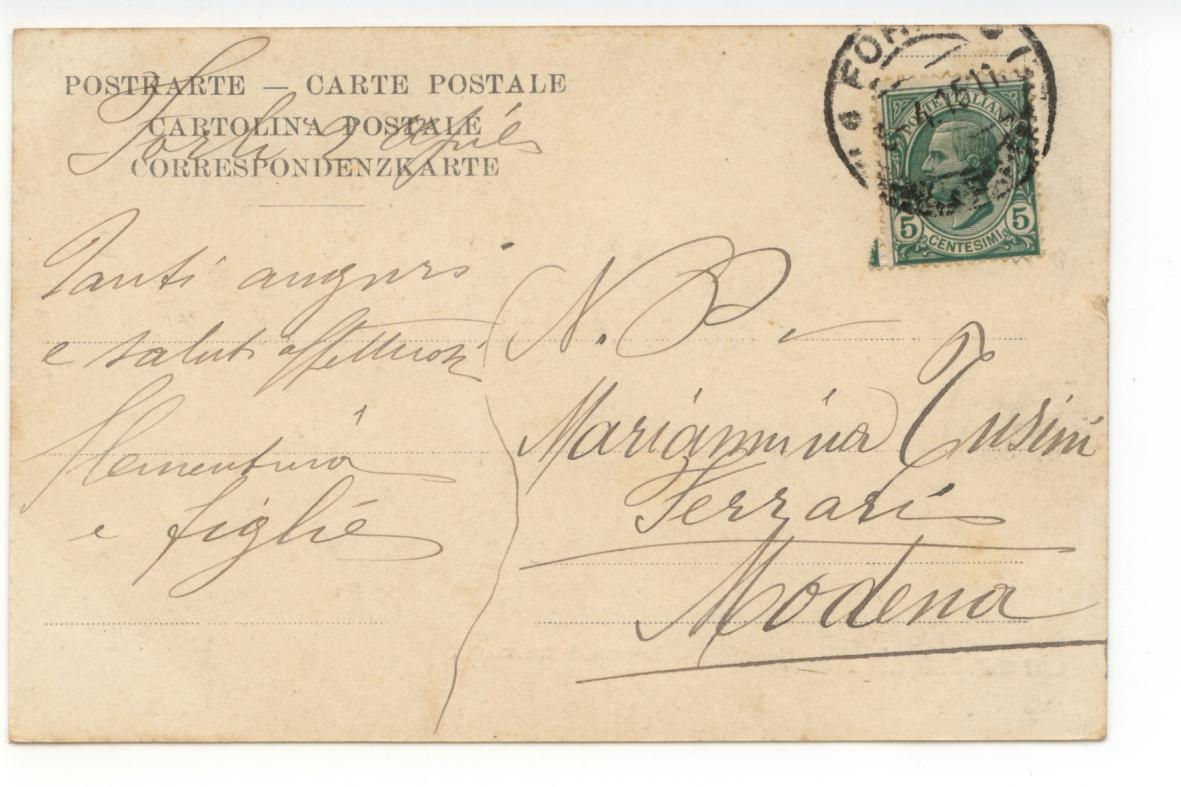 POSTKARTE — CARTE POSTALE
CARTOLINA POSTALE
CORRESPONDENZKARTE
Forlì 2
Tanti auguri
e saluti affettuosi
Clementina
e figlie
N. B.
Mariannina Tusini
Ferrari
Modena
POSTE ITALIANE
5 CENTESIMI 5
4.15 11